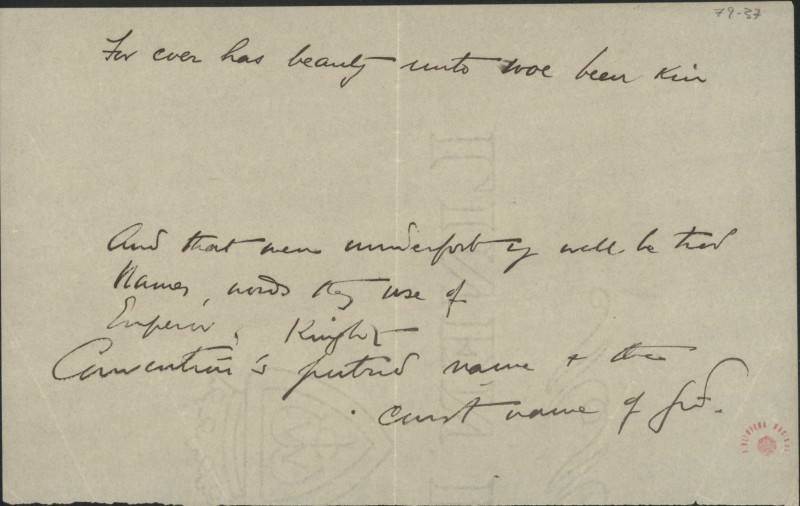 79-37
For ever has beauty unto woe been kin
And that were underfoot well be trod
Names, words they use of
Emperor, Knight
Convention's putrid name + the
curst name of God.